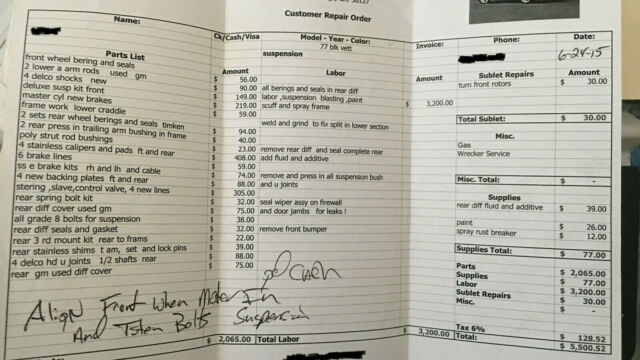 Customer Repair Order
Name:
Ck/Cash/Visa
Model - Year - Color:
77 blk vett
suspension
Invoice:
Phone:
Date:
6-24-15
Parts List
Amount
Labor
Amount
Sublet Repairs
Amount
front wheel bering and seals $ 56.00
2 lower a arm rods used gm $ 90.00 all berings and seals in rear diff
turn front rotors $ 30.00
4 delco shocks new $ 149.00 labor ,suspension blasting ,paint $ 3,200.00
deluxe susp kit front $ 219.00 scuff and spray frame
master cyl new brakes $ 59.00
frame work lower craddle
weld and grind to fix split in lower section
2 sets rear wheel berings and seals timken $ 94.00
2 rear press in trailing arm bushing in frame $ 40.00
poly strut rod bushings $ 23.00 remove rear diff and seal complete rear
4 stainless calipers and pads ft and rear $ 408.00 add fluid and additive
6 brake lines $ 59.00
ss e brake kits rh and lh and cable $ 74.00 remove and press in all suspension bush
4 new backing plates ft and rear $ 88.00 and u joints
stering ,slave,control valve, 4 new lines $ 305.00
rear spring bolt kit $ 32.00 seal wiper assy on firewall
rear diff cover used gm $ 75.00 and door jambs for leaks !
all grade 8 bolts for suspension $ 38.00
rear diff seals and gasket $ 32.00 remove front bumper
rear 3 rd mount kit rear to frame $ 22.00
rear stainless shims t am, set and lock pins $ 39.00
4 delco hd u joints 1/2 shafts rear $ 88.00
rear gm used diff cover $ 75.00
Total Sublet: $ 30.00
Misc.
Gas
Wrecker Service
Misc. Total: $ -
Supplies
rear diff fluid and additive $ 39.00
paint $ 26.00
spray rust breaker $ 12.00
Supplies Total: $ 77.00
Parts $ 2,065.00
Supplies $ 77.00
Labor $ 3,200.00
Sublet Repairs $ 30.00
Misc. $ -
Tax 6% $ 128.52
Total: $ 5,500.52
pd Cash
Align Front When Motor In
And Bolts Suspension
$ 2,065.00 Total Labor $ 3,200.00